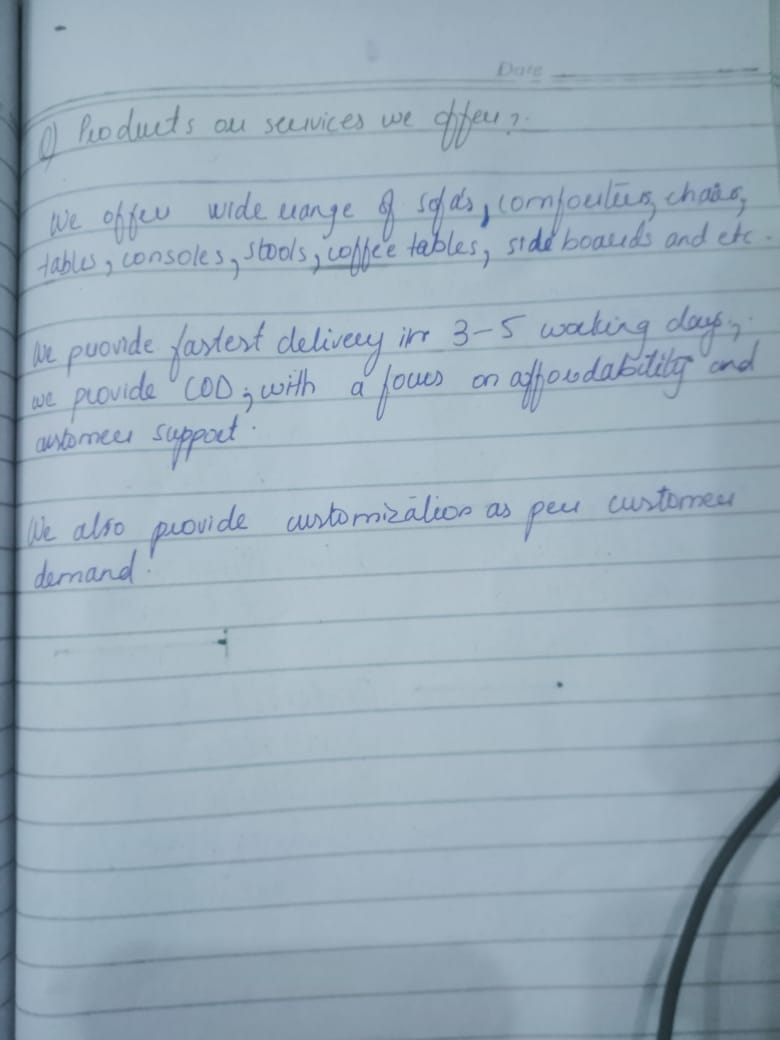 Date
Q) Products or services we offer?
We offer wide range of sofas, comforters, chairs,
tables, consoles, stools, coffee tables, side boards and etc.
We provide fastest delivery in 3-5 working days,
we provide COD, with a focus on affordability and
customer support.
We also provide customization as per customer
demand.